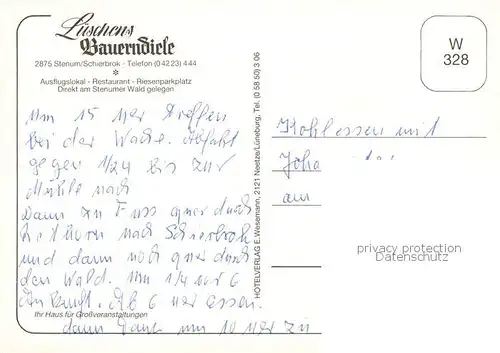 Lüschens
Bauerndiele
2875 Stenum/Schierbrok · Telefon (0 42 23) 444
*
Ausflugslokal - Restaurant - Riesenparkplatz
Direkt am Stenumer Wald gelegen
Um 15 Uhr Treffen
bei der Wache. Abfahrt
gegen 1/24 bis zur
Mühle nach
Dann zu Fuss quer durch
nach Schierbrok
und dann noch quer durch
den Wald. Um 1/4 vor 6
Ankunft. Ab 6 Uhr essen.
Ihr Haus für Großveranstaltungen
dann Tanz um 10 Uhr zu
HOTELVERLAG E. Wesemann, 2121 Neetze/Lüneburg, Tel. (0 58 50) 3 06
W
328
Kohlessen mit
Joha
am
privacy protection
Datenschutz